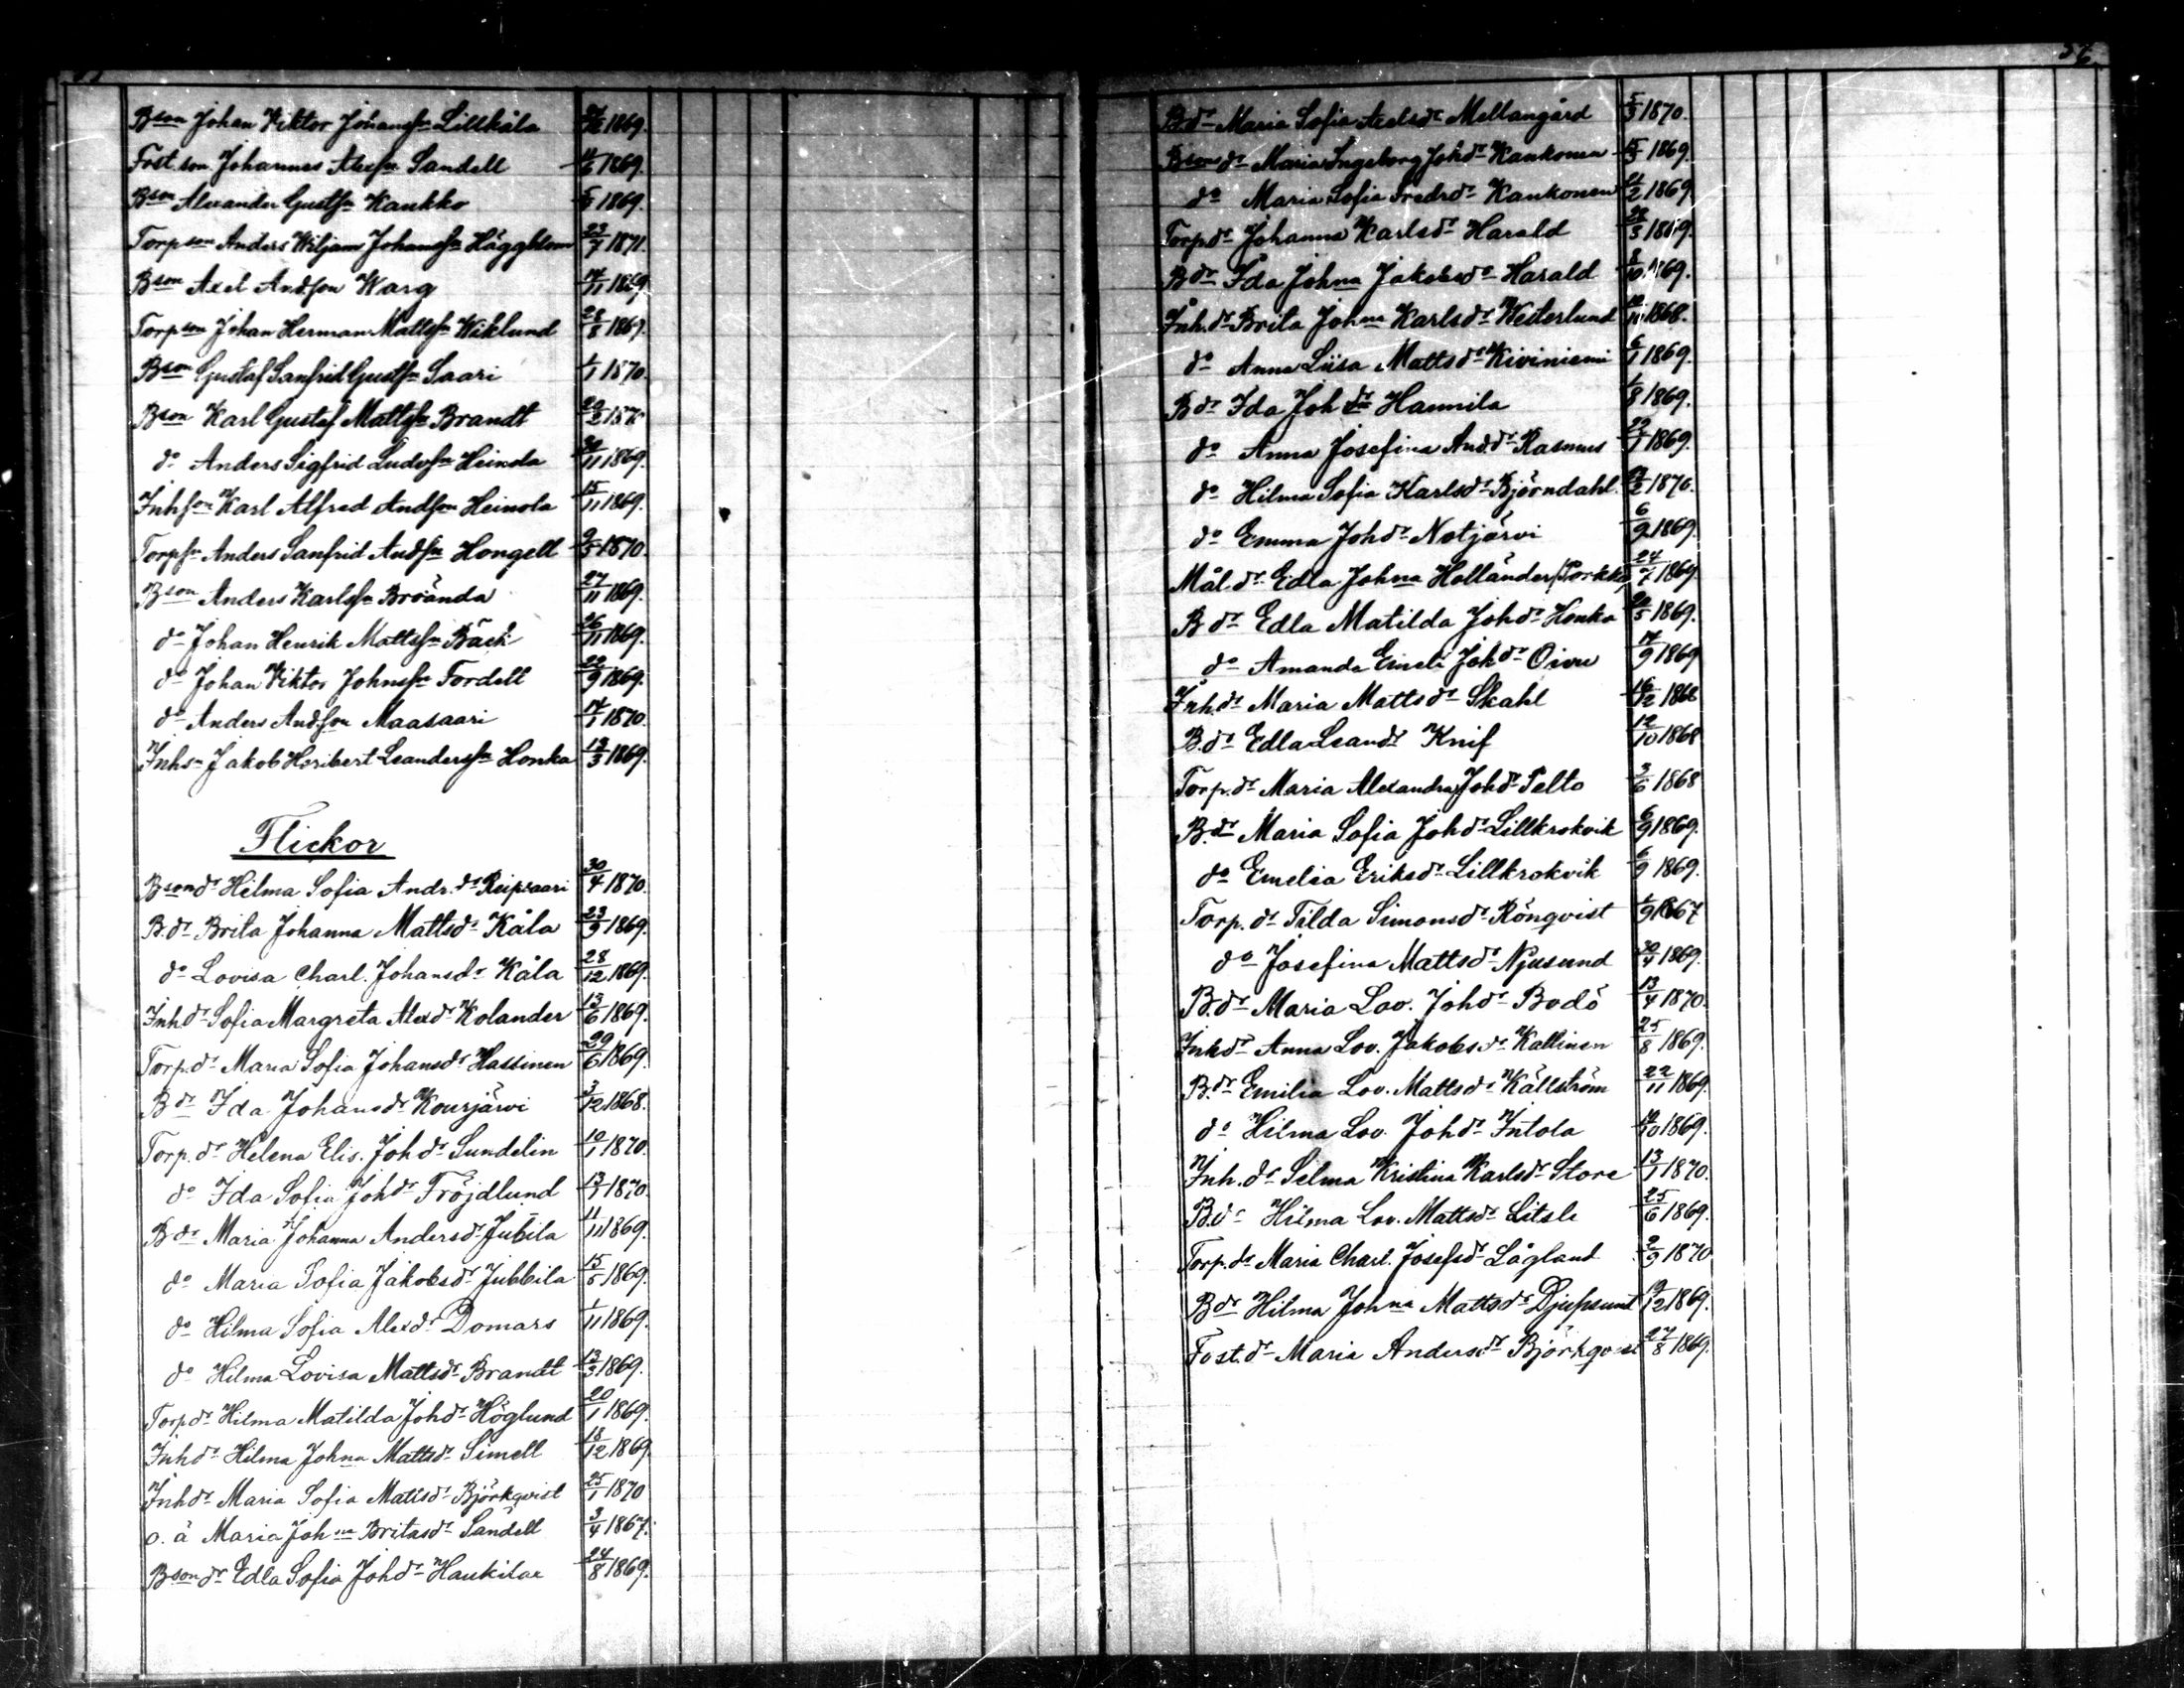 56
Bson Johan Viktor Johansson Lillkåla 1869.
Fost.son Johannes Alexson Sandell 11/6 1869.
Bson Alexander Gustfson Kaukko 5/5 1869.
Torpson Anders Wiljam Johansson Häggblom 23/7 1871.
Bson Axel Andson Warg 14/11 1869
Torpson Johan Herman Mattsson Wiklund 28/8 1869.
Bson Gustaf Sanfrid Gustfson Saari 1/1 1870.
Bson Karl Gustaf Mattsson Brandt 22/2 1870
do Anders Sigfrid Ludvson Heinola 30/11 1869.
Inhson Karl Alfred Andson Heinola 15/11 1869.
Torpsn Anders Sanfrid Andsn Hongell 9/5 1870.
Bson Anders Karlsson Brännda 27/11 1869.
do Johan Henrik Mattsson Bäck 26/11 1869.
do Johan Viktor Johnsson Fordell 22/9 1869.
do Anders Andson Maasaari 14/1 1870.
Inhsn Jakob Heribert Leanderssn Honka 13/3 1869.
Flickor
Bsondr Hilma Sofia Andr.dr Reipsaari 30/4 1870.
B.dr Brita Johanna Mattsdr Kåla 23/9 1869.
do Lovisa Charl. Johansdr Kåla 28/12 1869.
Inhdr Sofia Margreta Alexdr Kolander 13/6 1869.
Torp.dr Maria Sofia Johansdr Hassinen 29/6 1869.
Bdr Ida Johansdr Kourjärvi 3/12 1868.
Torp.dr Helena Elis. Johdr Sundelin 10/1 1870.
do Ida Sofia Johdr Fröjdlund 13/1 1870.
Bdr Maria Johanna Andersdr Jubila 11/11 1869.
do Maria Sofia Jakobsdr Jubbila 15/5 1869.
do Hilma Sofia Alexdr Domars 1/11 1869.
do Hilma Lovisa Mattsdr Brandt 13/3 1869.
Torpdr Hilma Matilda Johdr Höglund 20/1 1869.
Inhdr Hilma Johna Mattsdr Simell 18/12 1869.
Inhdr Maria Sofia Mattsdr Björkqvist 25/1 1870
o. ä Maria Johna Britasdr Sandell 3/4 1867.
Bsondr Edla Sofia Johdr Haukilae 24/8 1869.
Bdr Maria Sofia Axelsdr Mellangård 5/3 1870.
Bsondr Maria Ingeborg Johdr Kaukonen 15/3 1869.
do Maria Sofia Fredrdr Kaukonen 21/2 1869.
Torpdr Johanna Karlsdr Harald 28/3 1869.
Bdr Ida Johna Jakobsdr Harald 8/10 1869.
Inh.dr Brita Johna Karlsdr Westerlund 1868.
do Anna Liisa Mattsdr Kiviniemi 6/1 1869.
Bdr Ida Johdr Hannila 1/8 1869.
do Anna Josefina And.dr Rasmus 22/1 1869.
do Hilma Sofia Karlsdr Björndahl. 1870.
do Emma Johdr Notjärvi 6/9 1869.
Mål.dr Edla Johna Holländer (Porkko) 24/7 1869.
B dr Edla Matilda Johdr Honka 20/5 1869.
do Amanda Emeli Johdr Oivu 14/9 1869
Inh.dr Maria Mattsdr Skahl 16/12 1868
B.dr Edla Leandr Knif 12/10 1868
Torp.dr Maria Alexandra Johdr Pelto 3/6 1868
B.dr Maria Sofia Johdr Lillkrokvik 6/9 1869.
do Emelia Eriksdr Lillkrokvik 6/9 1869.
Torp.dr Tilda Simonsdr Rönqvist 1/9 1867
do Josefina Mattsdr Njusund 30/4 1869.
B.dr Maria Lov. Johdr Bodö 13/4 1870.
Inhdr Anna Lov. Jakobsdr Kallinen 25/8 1869.
B.dr Emilia Lov. Mattsdr Källström 22/11 1869.
do Hilma Lov. Johdr Intola 10/10 1869.
Inh.dr Selma Kristina Karlsdr Store 13/1 1870.
B.dr Hilma Lov. Mattsdr Litsle 25/6 1869.
Torp.dr Maria Charl. Josefsdr Lågland 2/9 1870
Bdr Hilma Johna Mattsdr Djupsund 9/12 1869.
Fost.dr Maria Andersdr Björkqvist 27/8 1869.